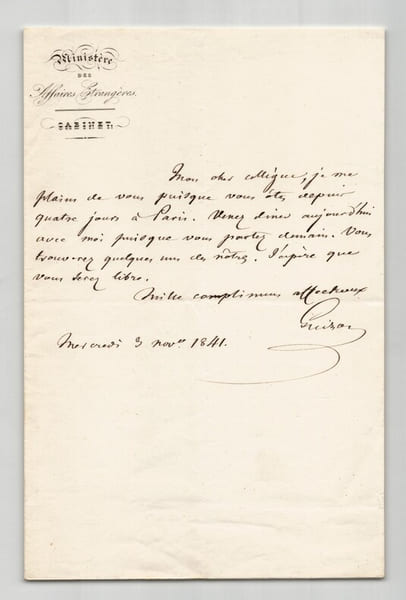 Ministère
DES
Affaires Etrangères.
CABINET.
Mon cher collègue, je me
plains de vous puisque vous êtes depuis
quatre jours à Paris. Venez diner aujourd'hui
avec moi puisque vous partez demain. Vous
trouverez quelques uns des nôtres. J'espère que
vous serez libre.
Mille complimens affectueux
Guizot
Mercredi 3 nov.re 1841.